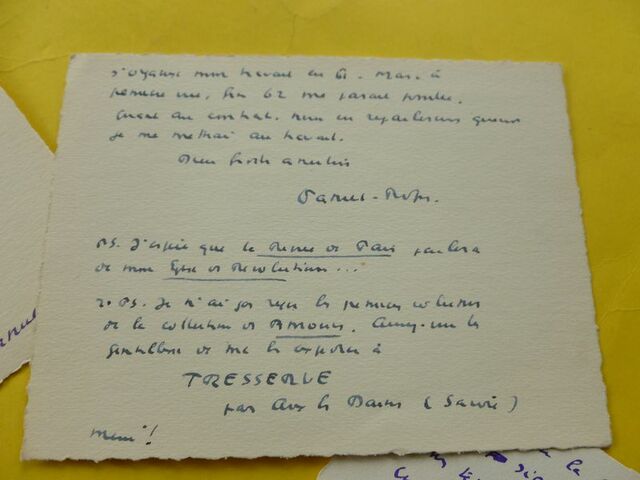 j'organise mon travail en 61. Mais à
première vue, fin 62 me paraît possible.
Quant au contrat, nous en reparlerons quand
je me mettrai au travail.
Bien fidèle amitié
Daniel-Rops.
PS. J'espère que la Revue de Paris parlera
de mon Eglise des Révolutions...
2e PS. Je n'ai pas reçu les premiers volumes
de la collection de Amours. Auriez-vous la
gentillesse de me les expédier à
TRESSERVE
par Aix les Bains (Savoie)
Merci!